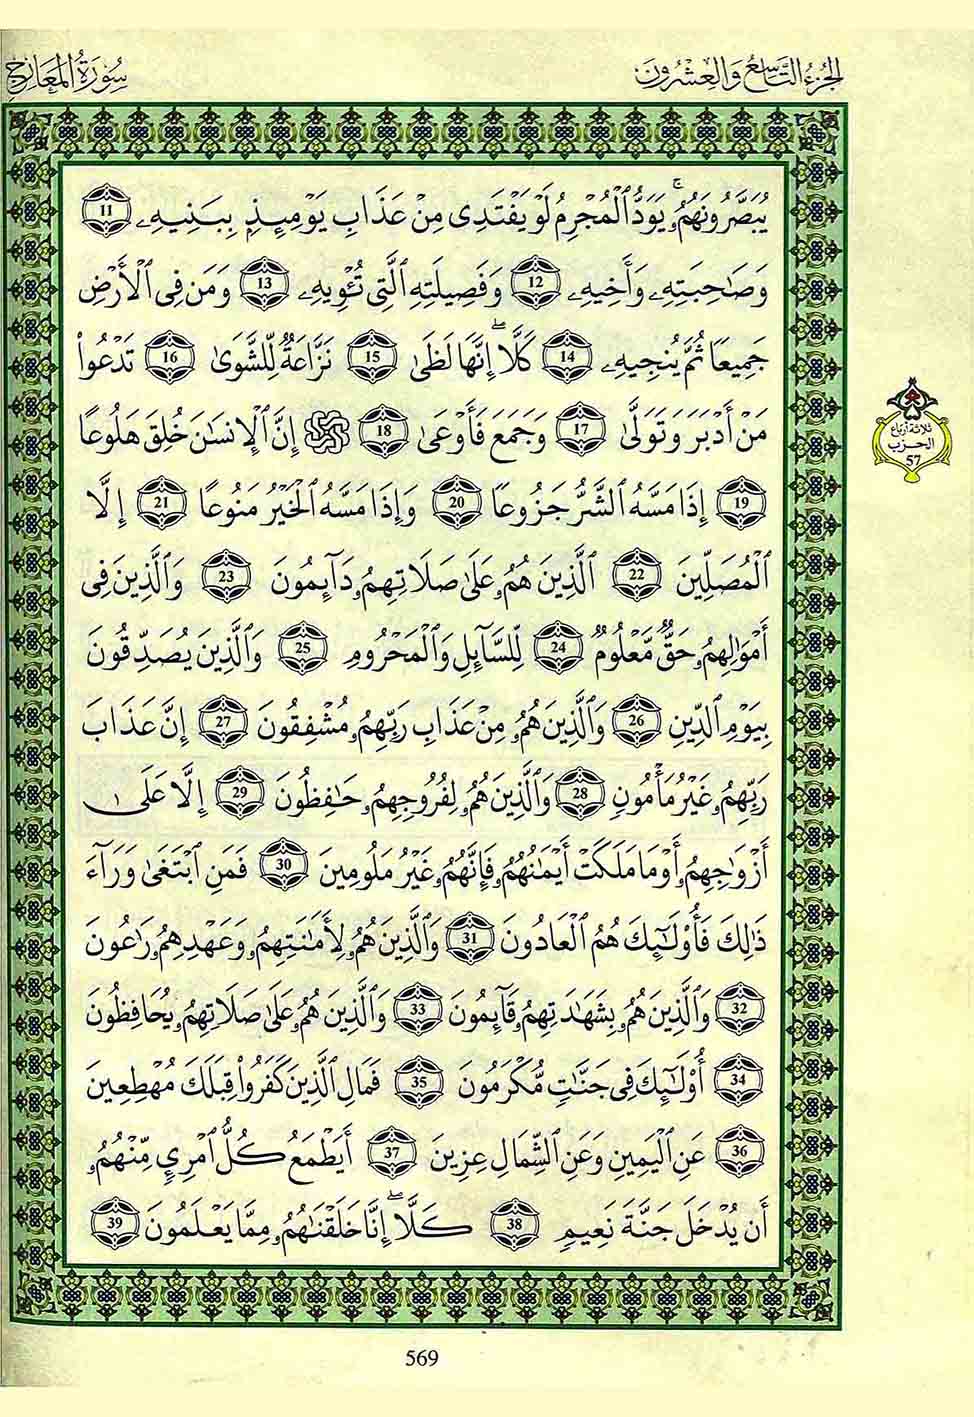 الجزء التاسع والعشرون
سورة المعارج
يُبَصَّرُونَهُمُۥۚ يَوَدُّ ٱلْمُجْرِمُ لَوْ يَفْتَدِى مِنْ عَذَابِ يَوْمِئِذٍۭ بِبَنِيهِۦ 11
وَصَٰحِبَتِهِۦ وَأَخِيهِۦ 12 وَفَصِيلَتِهِ ٱلَّتِى تُـْٔوِيهِۦ 13 وَمَن فِى ٱلْأَرْضِ
جَمِيعًا ثُمَّ يُنجِيهِۦ 14 كَلَّآۖ إِنَّهَا لَظَىٰ 15 نَزَّاعَةٌ لِّلشَّوَىٰ 16 تَدْعُوا۟
مَنْ أَدْبَرَ وَتَوَلَّىٰ 17 وَجَمَعَ فَأَوْعَىٰ 18 إِنَّ ٱلْإِنسَٰنَ خُلِقَ هَلُوعًا
19 إِذَا مَسَّهُ ٱلشَّرُّ جَزُوعًا 20 وَإِذَا مَسَّهُ ٱلْخَيْرُ مَنُوعًا 21 إِلَّا
ٱلْمُصَلِّينَ 22 ٱلَّذِينَ هُمُۥ عَلَىٰ صَلَاتِهِمُۥ دَآئِمُونَ 23 وَٱلَّذِينَ فِى
أَمْوَٰلِهِمُۥ حَقٌّ مَّعْلُومٌ 24 لِّلسَّآئِلِ وَٱلْمَحْرُومِ 25 وَٱلَّذِينَ يُصَدِّقُونَ
بِيَوْمِ ٱلدِّينِ 26 وَٱلَّذِينَ هُمُۥ مِنْ عَذَابِ رَبِّهِمُۥ مُشْفِقُونَ 27 إِنَّ عَذَابَ
رَبِّهِمُۥ غَيْرُ مَأْمُونٍ 28 وَٱلَّذِينَ هُمُۥ لِفُرُوجِهِمُۥ حَٰفِظُونَ 29 إِلَّا عَلَىٰ
أَزْوَٰجِهِمُۥ أَوْ مَا مَلَكَتْ أَيْمَٰنُهُمُۥ فَإِنَّهُمُۥ غَيْرُ مَلُومِينَ 30 فَمَنِ ٱبْتَغَىٰ وَرَآءَ
ذَٰلِكَ فَأُو۟لَٰٓئِكَ هُمُ ٱلْعَادُونَ 31 وَٱلَّذِينَ هُمُۥ لِأَمَٰنَتِهِمُۥ وَعَهْدِهِمُۥ رَٰعُونَ
32 وَٱلَّذِينَ هُمُۥ بِشَهَٰدَتِهِمُۥ قَآئِمُونَ 33 وَٱلَّذِينَ هُمُۥ عَلَىٰ صَلَاتِهِمُۥ يُحَافِظُونَ
34 أُو۟لَٰٓئِكَ فِى جَنَّٰتٍ مُّكْرَمُونَ 35 فَمَالِ ٱلَّذِينَ كَفَرُوا۟ قِبَلَكَ مُهْطِعِينَ
36 عَنِ ٱلْيَمِينِ وَعَنِ ٱلشِّمَالِ عِزِينَ 37 أَيَطْمَعُ كُلُّ ٱمْرِئٍ مِّنْهُمُۥ
أَن يُدْخَلَ جَنَّةَ نَعِيمٍ 38 كَلَّآۖ إِنَّا خَلَقْنَٰهُمُۥ مِمَّا يَعْلَمُونَ 39
ثلاثة أرباع
الحزب
57
569